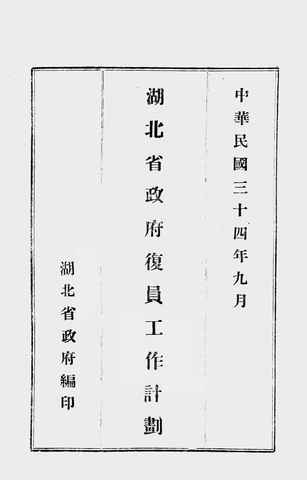 中華民國三十四年九月
湖北省政府復員工作計劃
湖北省政府編印